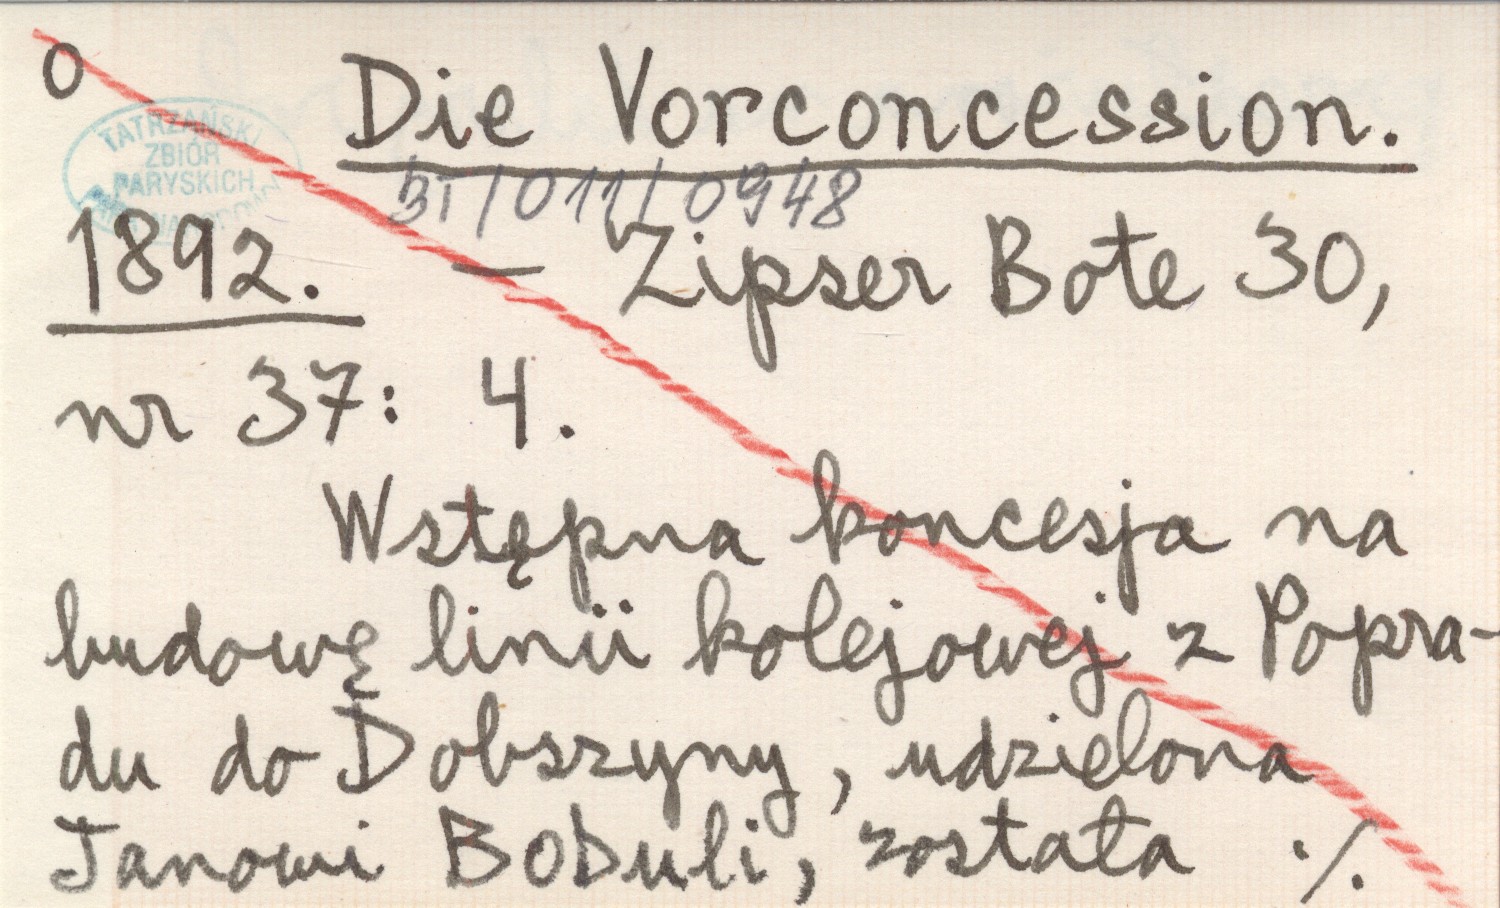 O
Die Vorconcession.
TATRZAŃSKI
ZBIÓR
PARYSKICH
BT/011/0948
1892. — Zipser Bote 30,
nr 37: 4.
Wstępna koncesja na
budowę linii kolejowej z Popra-
du do Dobszyny, udzielona
Janowi Bobuli, została ./.